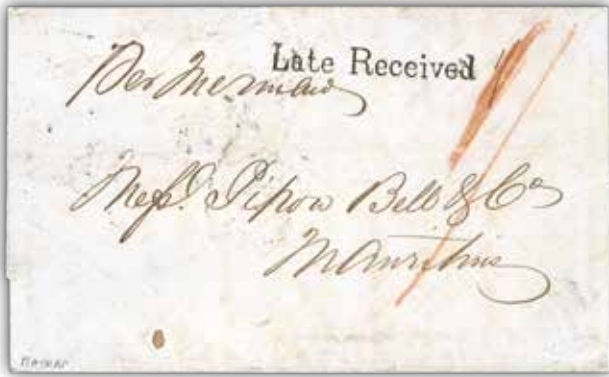 Late Received
Per Mermaid
Mess. Pipon Bell & Co
Mauritius